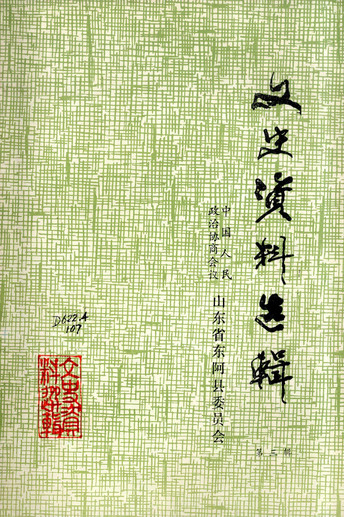 文史资料选辑
中国人民
政治协商会议
山东省东阿县委员会
第三辑
D622.4
107
文史资
料选辑